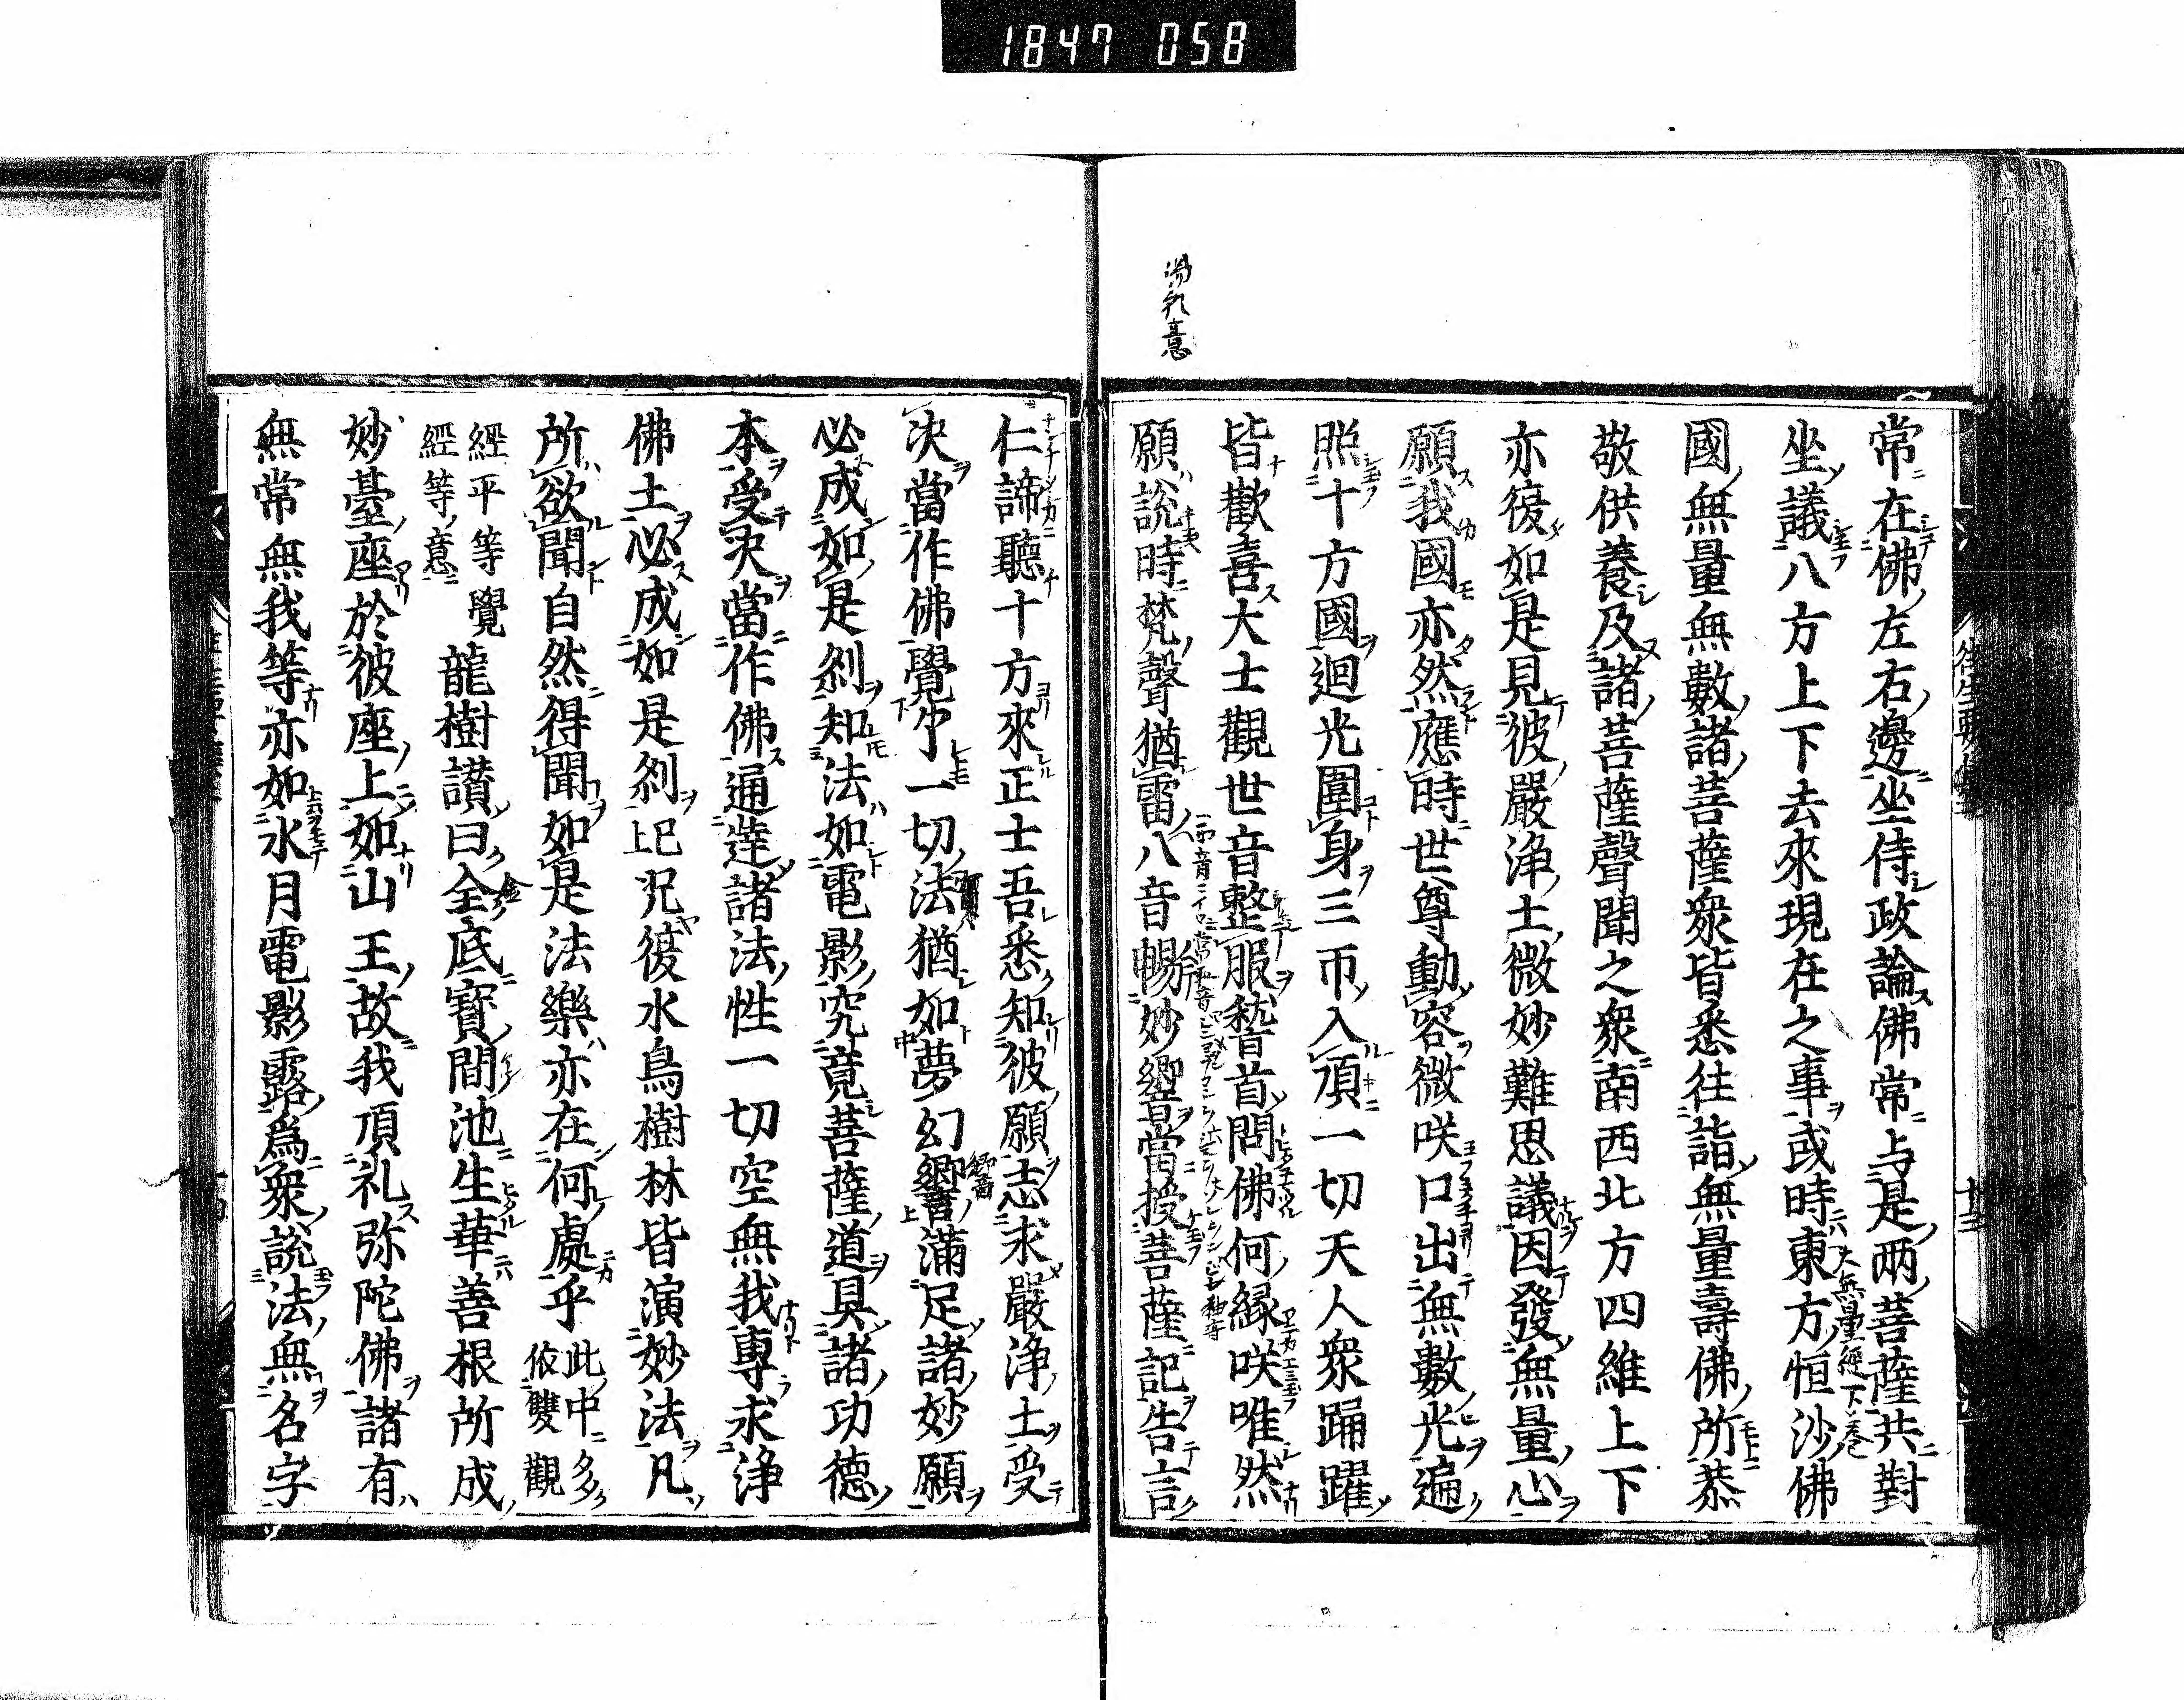 1847 058
常在佛左右邊坐侍政論佛常与是兩菩薩共對
坐議八方上下去來現在之事或時東方恒沙佛
大無量經下卷
國無量無數諸菩薩衆皆悉往詣無量壽佛所恭
敬供養及諸菩薩聲聞之衆南西北方四維上下
亦復如是見彼嚴浄土微妙難思議因發無量心
願我國亦然應時世尊動容微咲口出無數光遍
照十方國迴光圍身三帀入頂一切天人衆踊躍
皆歡喜大士觀世音整服稽首問佛何縁咲唯然
願説時梵聲猶雷八音暢妙響當授菩薩記告言
仁諦聽十方來正士吾悉知彼願志求嚴浄土受
决當作佛覺了一切法猶如夢幻響滿足諸妙願
必成如是刹知法如電影究竟菩薩道具諸功德
本受决當作佛通達諸法性一切空無我專求浄
佛土必成如是刹上巳况復水鳥樹林皆演妙法凡
所欲聞自然得聞如是法樂亦在何處乎此中多
依雙觀
經平等覺
經等意
龍樹讃曰金底寶間池生華善根所成
妙臺座於彼座上如山王故我頂礼弥陀佛諸有
無常無我等亦如水月電影露爲衆説法無名字